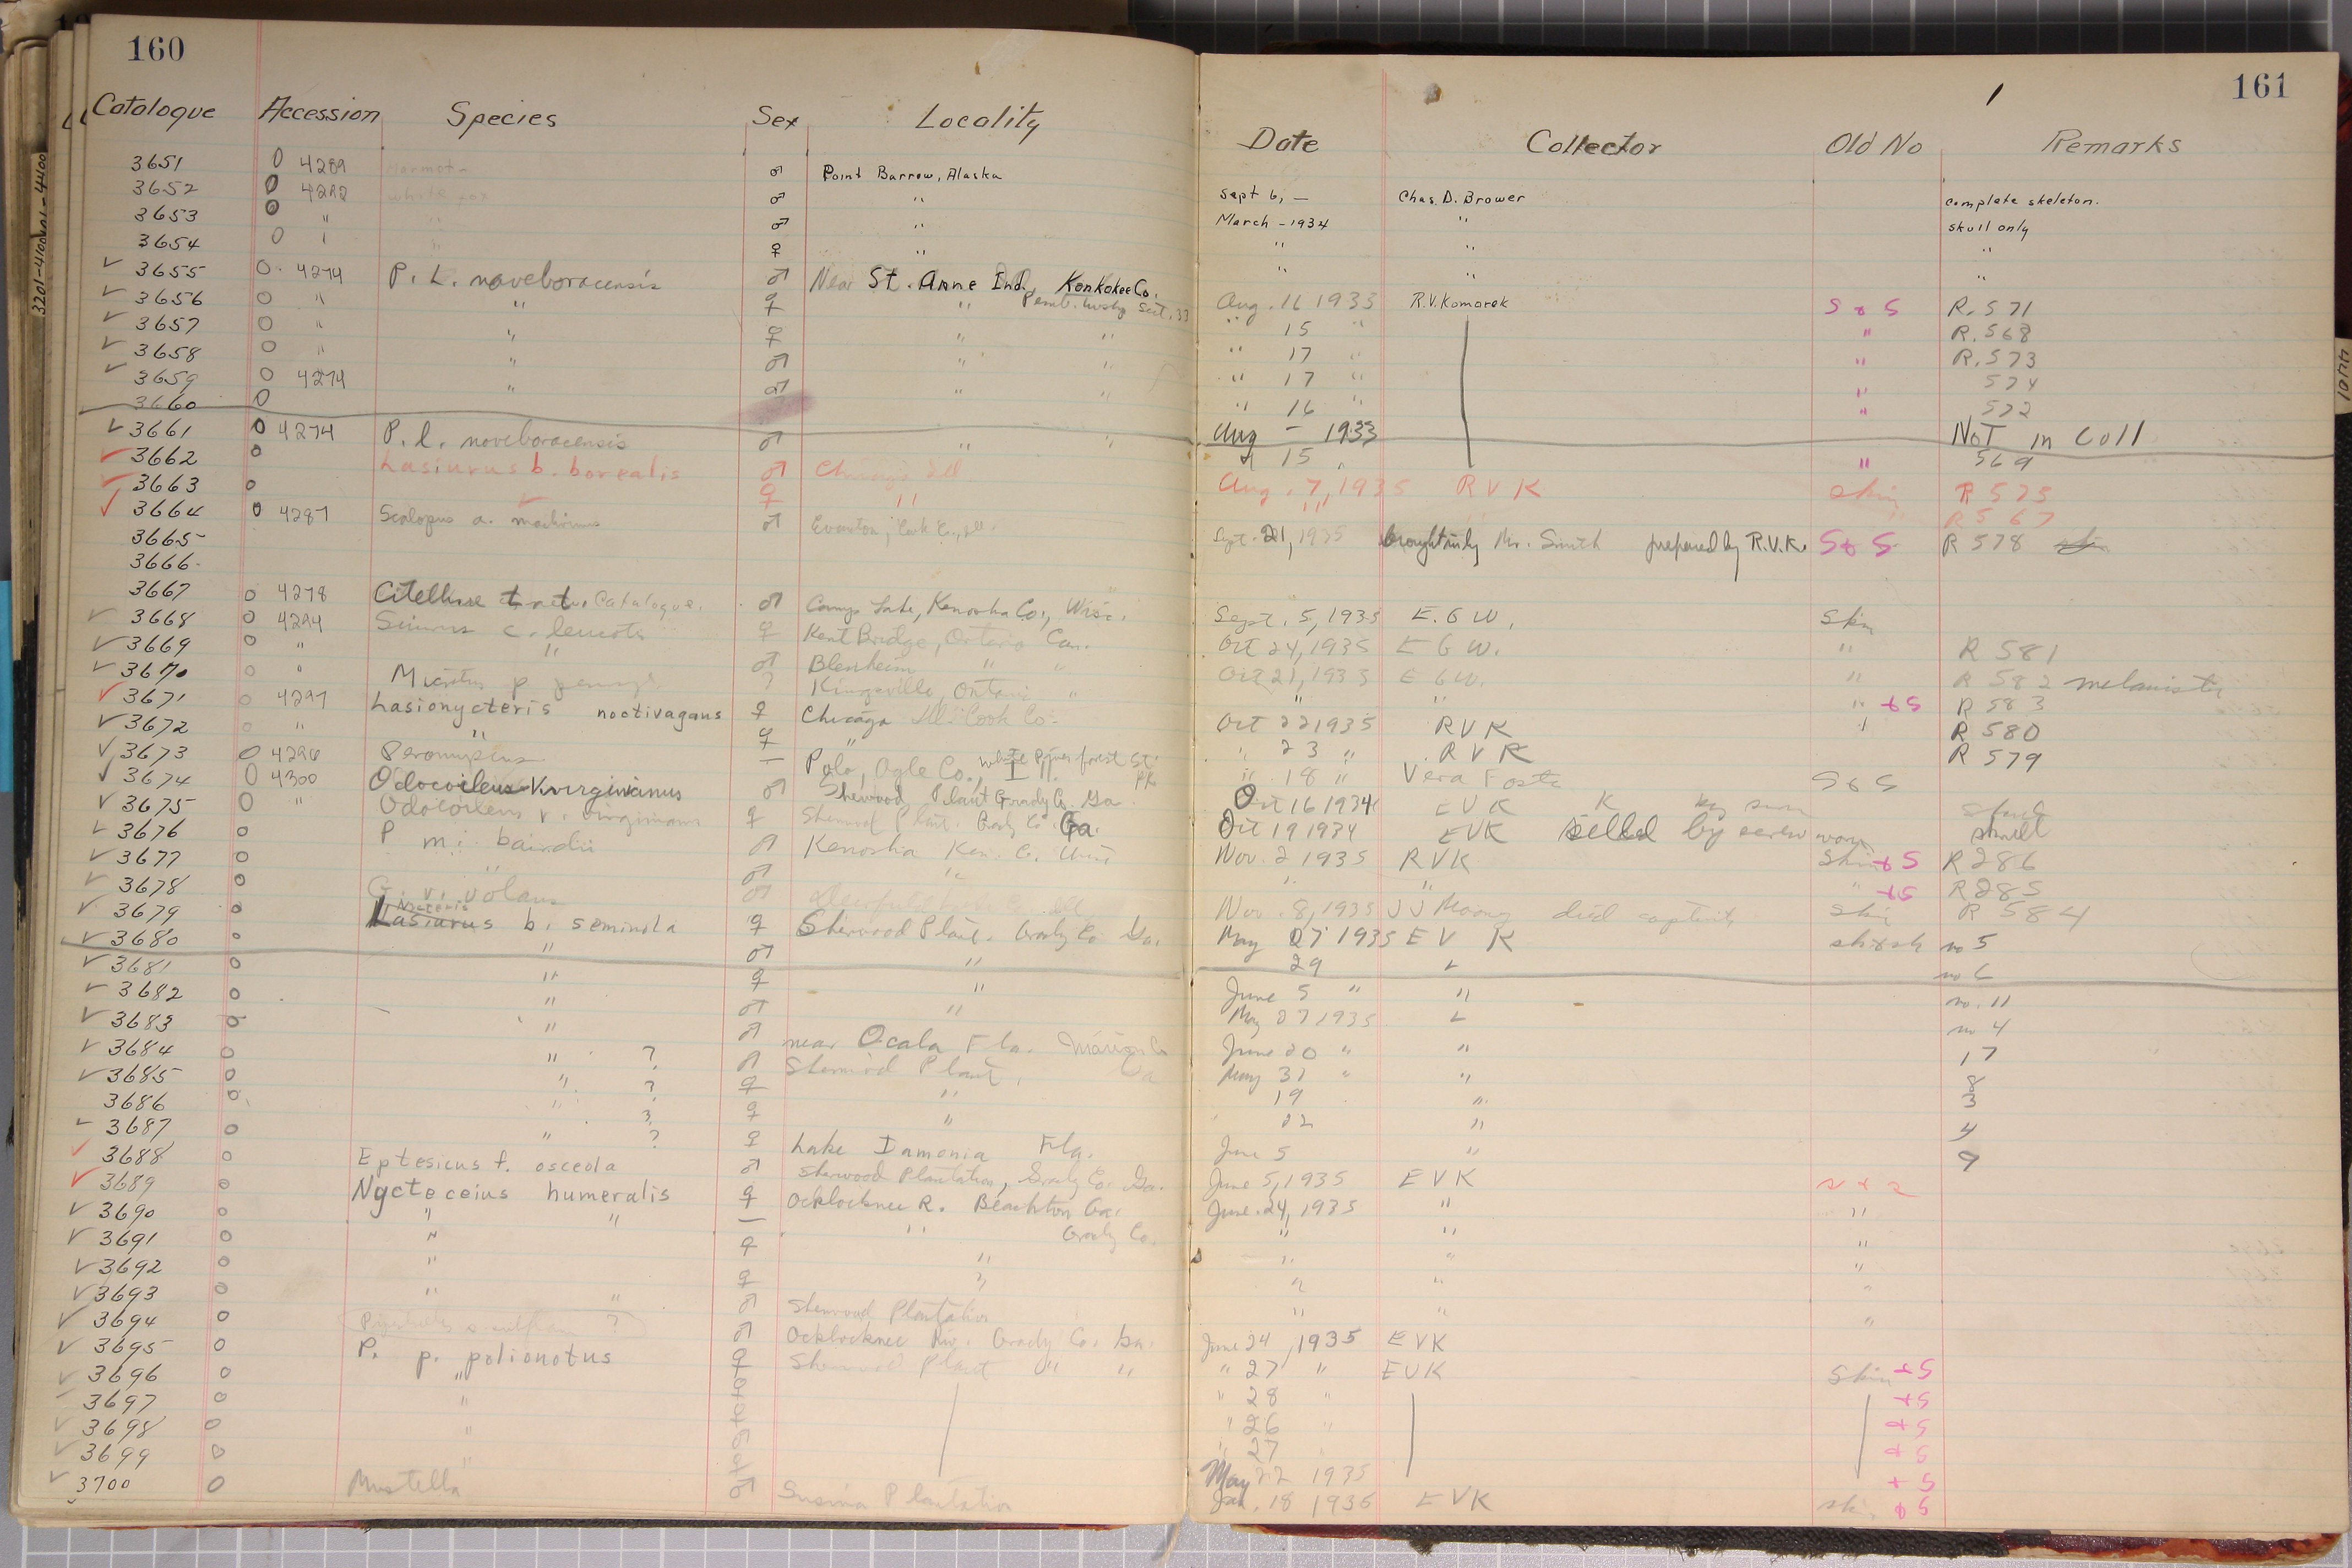 160
161
Catalogue Accession Species Sex Locality Date Collector Old No Remarks
3651 0 4289 Marmot ♂ Point Barrow, Alaska Sept 6, — Chas. D. Brower complete skeleton.
3652 0 4292 White fox ♂ " March - 1934 " skull only
3653 0 " " ♂ " " " "
3654 0 " " ♀ " " " "
3655 0 4274 P. L. noveboracensis ♂ Near St. Anne Ind, Kankakee Co. Aug. 16 1933 R.V.Komarek S & S R. 571
3656 0 " " ♀ " Pemb. Sect. 33 " 15 " " R. 568
3657 0 " " ♀ " " " 17 " " R. 573
3658 0 " " ♂ " " " 17 " " 574
3659 0 4274 " ♂ " " " 16 " " 572
3660 0 Aug — 1933 Not in Coll
3661 0 4274 P. l. noveboracensis ♂ " " " 15 " " 569
3662 0 Lasiurus b. borealis ♂ Chicago Ill Aug. 7, 1935 R V K skin R 575
3663 0 ♀ " " R 567
3664 0 4287 Scalopus a. machrinus ♂ Evanston, Cook Co., Ill. Sept. 21, 1935 brought in by Mr. Smith prepared by R.V.K. S & S R 578
3665
3666
3667 0 4278 Citellus t. Catalogue. ♂ Camp Lake, Kenosha Co., Wis. Sept. 5, 1935 E. G W. Skin
3668 0 4294 Sciurus c. leucotis ♀ Kent Bridge, Ontario Can. Oct 24, 1935 E G W. " R 581
3669 0 " " ♂ Blenheim " " Oct 21, 1935 E G W. " R 582 melanistic
3670 0 " Microtus p. ? Kingsville, Ontario " " " " + S R 583
3671 0 4297 Lasionycteris noctivagans ♀ Chicago Ill. Cook Co. Oct 22 1935 R V K " R 580
3672 0 " " ♀ " " 23 " R V K R 579
3673 0 4296 Peromyscus — Polo, Ogle Co., Ill. White Pines forest St. Pk " 18 " Vera S & S
3674 0 4300 Odocoileus virginianus ♂ Sherwood Plant Grady Co. Ga. Oct 16 1934 E V K
3675 0 " Odocoileus v. virginianus ♀ Sherwood Plant. Grady Co. Ga. Oct 19 1934 EVK killed by screw worm skull
3676 0 P m. bairdii ♂ Kenosha Ken. Co. Wis Nov. 2 1935 RVK Skin + S R 286
3677 0 " ♂ " " " " + S R 285
3678 0 G. v. volans ♂ Nov. 8, 1935 J J Mooney died captivity Skin R 584
3679 0 Lasiurus Nycteris b. seminola ♀ Sherwood Plant. Grady Co Ga. May 27 1935 E V K sk & sk no 5
3680 0 " ♂ " 29 " no 6
3681 0 " ♀ " June 5 " " no. 11
3682 0 " ♂ " May 27 1935 " no 4
3683 0 " ♂ near Ocala Fla. Marion Co June 20 " " 17
3684 0 " ? ♂ Sherwood Plant, Ga May 31 " " 8
3685 0 " ? ♀ " 19 " 3
3686 0 " ? ♀ " 22 " 4
3687 0 " ? ♀ Lake Iamonia Fla. June 5 " 9
3688 0 Eptesicus f. osceola ♂ Sherwood Plantation, Grady Co. Ga. June 5, 1935 E V K s & s
3689 0 Nycteceius humeralis ♀ Ocklocknee R. Beachton Ga. June 24, 1935 " "
3690 0 " " — " Grady Co. " " "
3691 0 " ♀ " " " "
3692 0 " ♀ " " " "
3693 0 " " ♂ Sherwood Plantation " " "
3694 0 ? ♂ Ocklocknee Riv. Grady Co. Ga. June 24, 1935 E V K
3695 0 P. p. polionotus ♀ Sherwood Plant " " " 27 " EVK Skin + S
3696 0 " " 28 " + S
3697 0 " " 26 " + S
3698 0 " " 27 " + S
3699 0 " May 22 1935 + S
3700 0 Mustella ♂ Susina Plantation Jan. 18 1936 E V K sk. & S
3201-4100
4101-4400